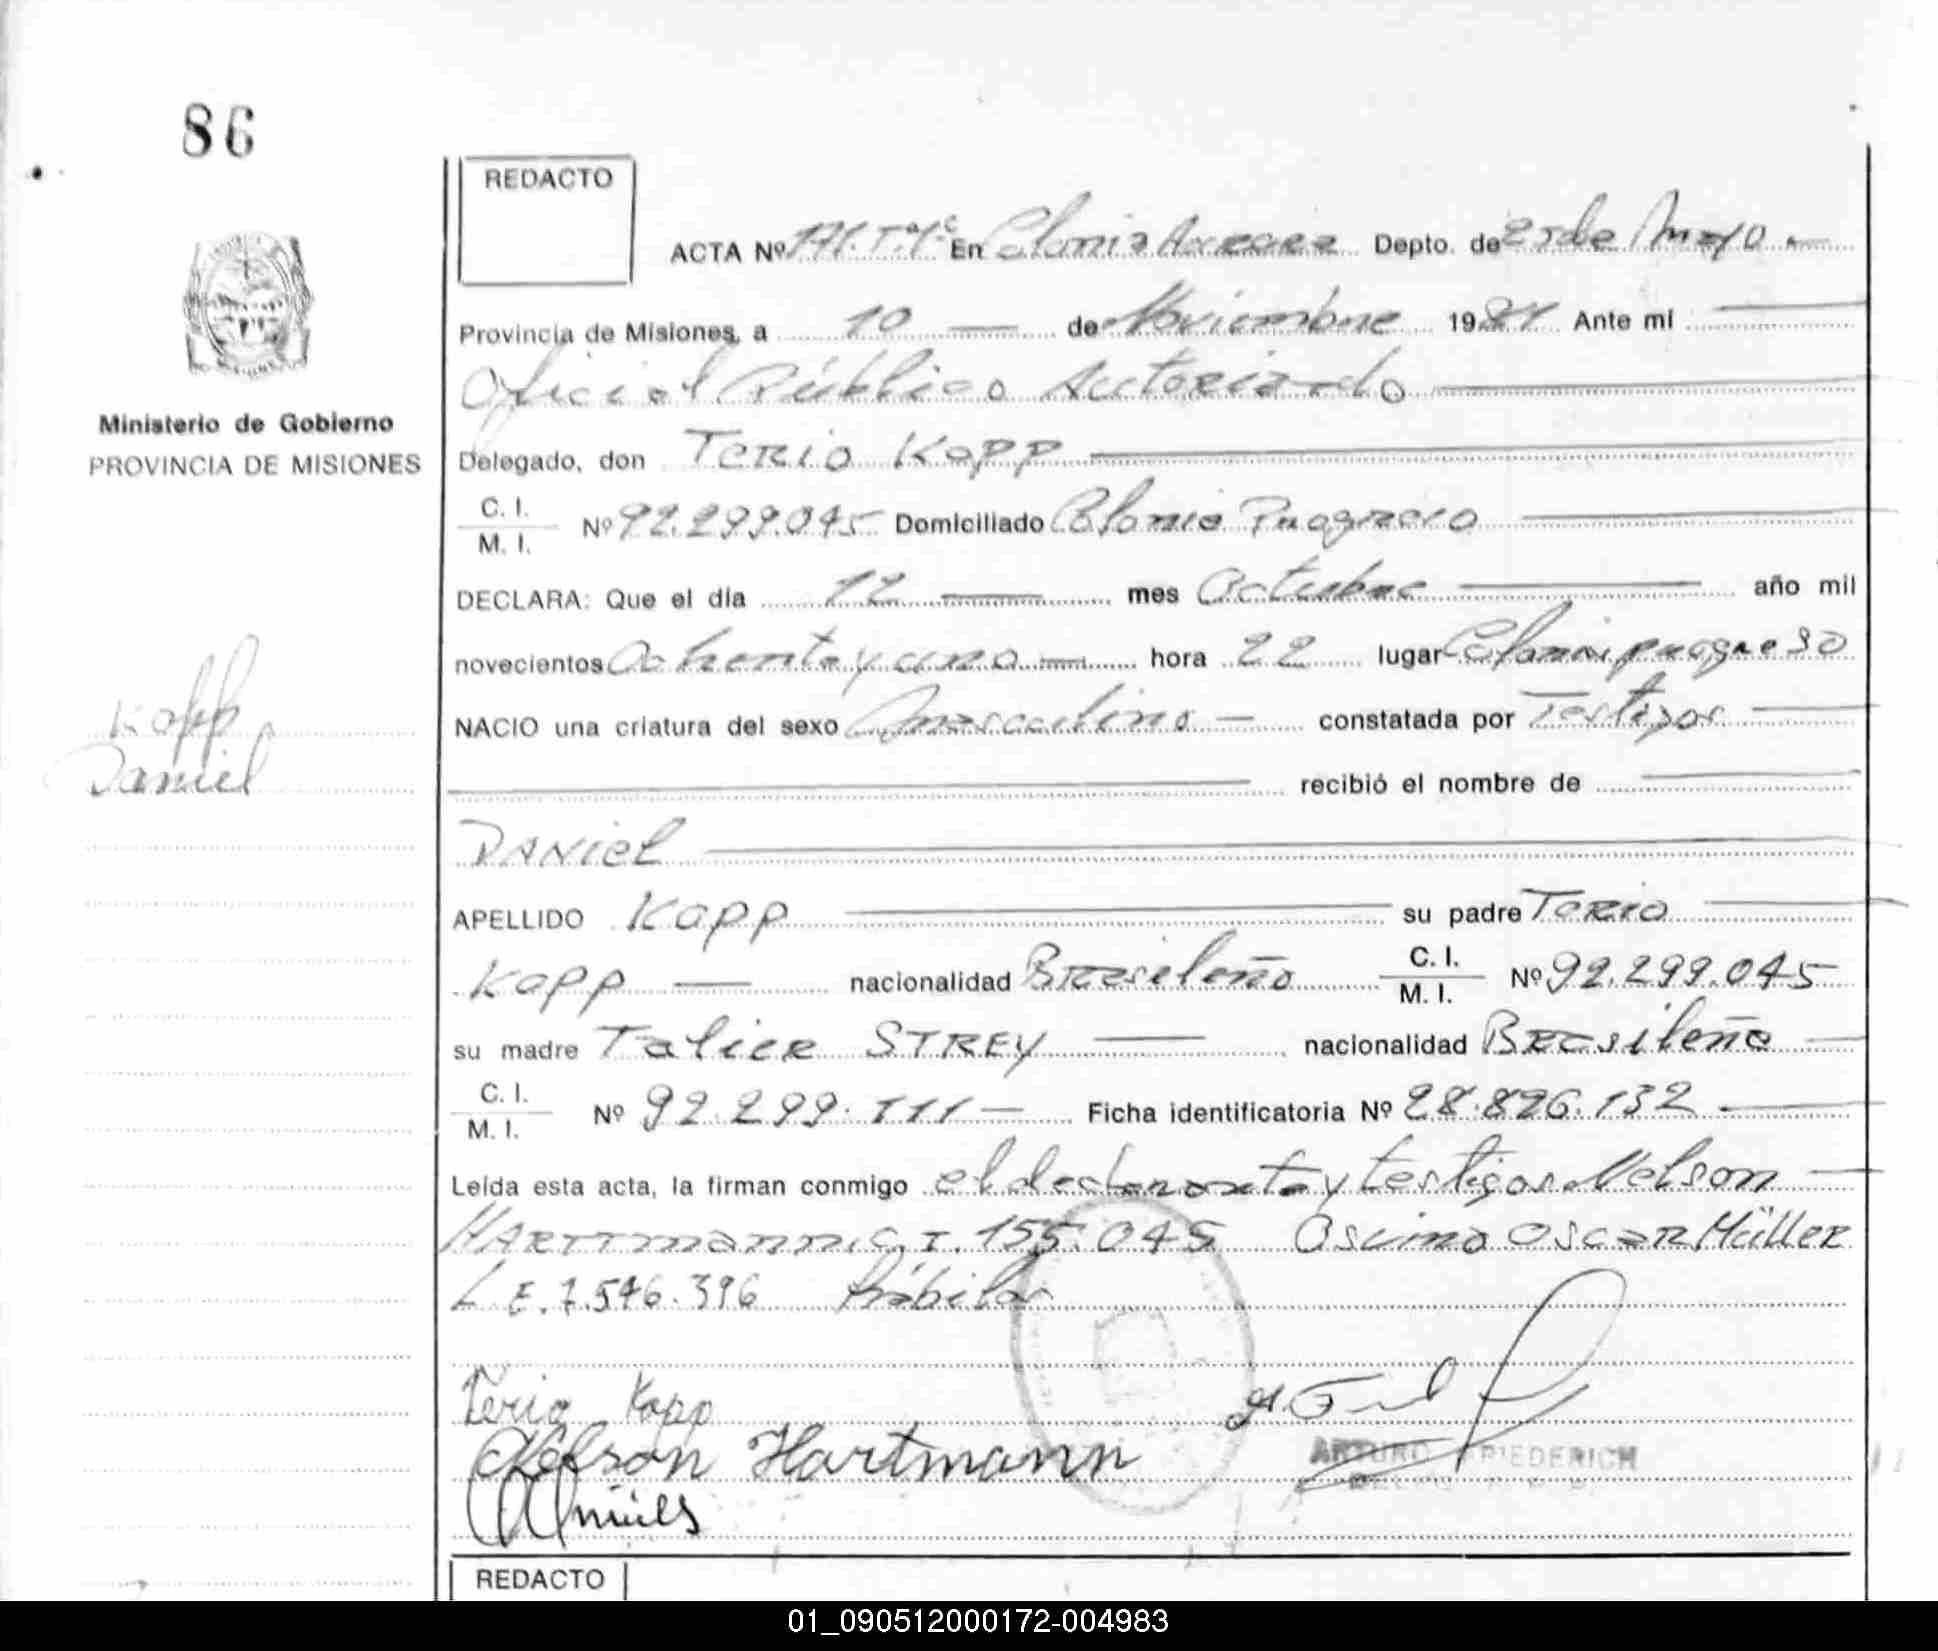 86
REDACTO
ACTA Nº 171.T.1º En Colonia Aurora Depto. de 25 de Mayo.
Provincia de Misiones, a 10 de Noviembre 1981 Ante mí
Oficial Público Autorizado
Ministerio de Gobierno
PROVINCIA DE MISIONES
Delegado, don Terio Kopp
C. I.
M. I.
Nº 92.299.045 Domiciliado Colonia Progreso
DECLARA: Que el día 12 mes Octubre año mil
novecientos Ochenta y uno hora 22 lugar Colonia progreso
Kopp
Daniel
NACIO una criatura del sexo Masculino constatada por Testigos
recibió el nombre de
DANIEL
APELLIDO Kopp su padre Terio
Kopp nacionalidad Brasileño C. I.
M. I. Nº 92.299.045
su madre Talice STREY nacionalidad Brasileña
C. I.
M. I.
Nº 92.299.111 Ficha identificatoria Nº 28.826.132
Leída esta acta, la firman conmigo el declarante y testigos Nelson
HARTTmann C.I. 155.045 Oscimo OSCAR Müller
L.E. 7.546.396 hábiles
Terio Kopp
Nelson Hartmann
ARTURO FRIEDERICH
REDACTO
01_090512000172-004983